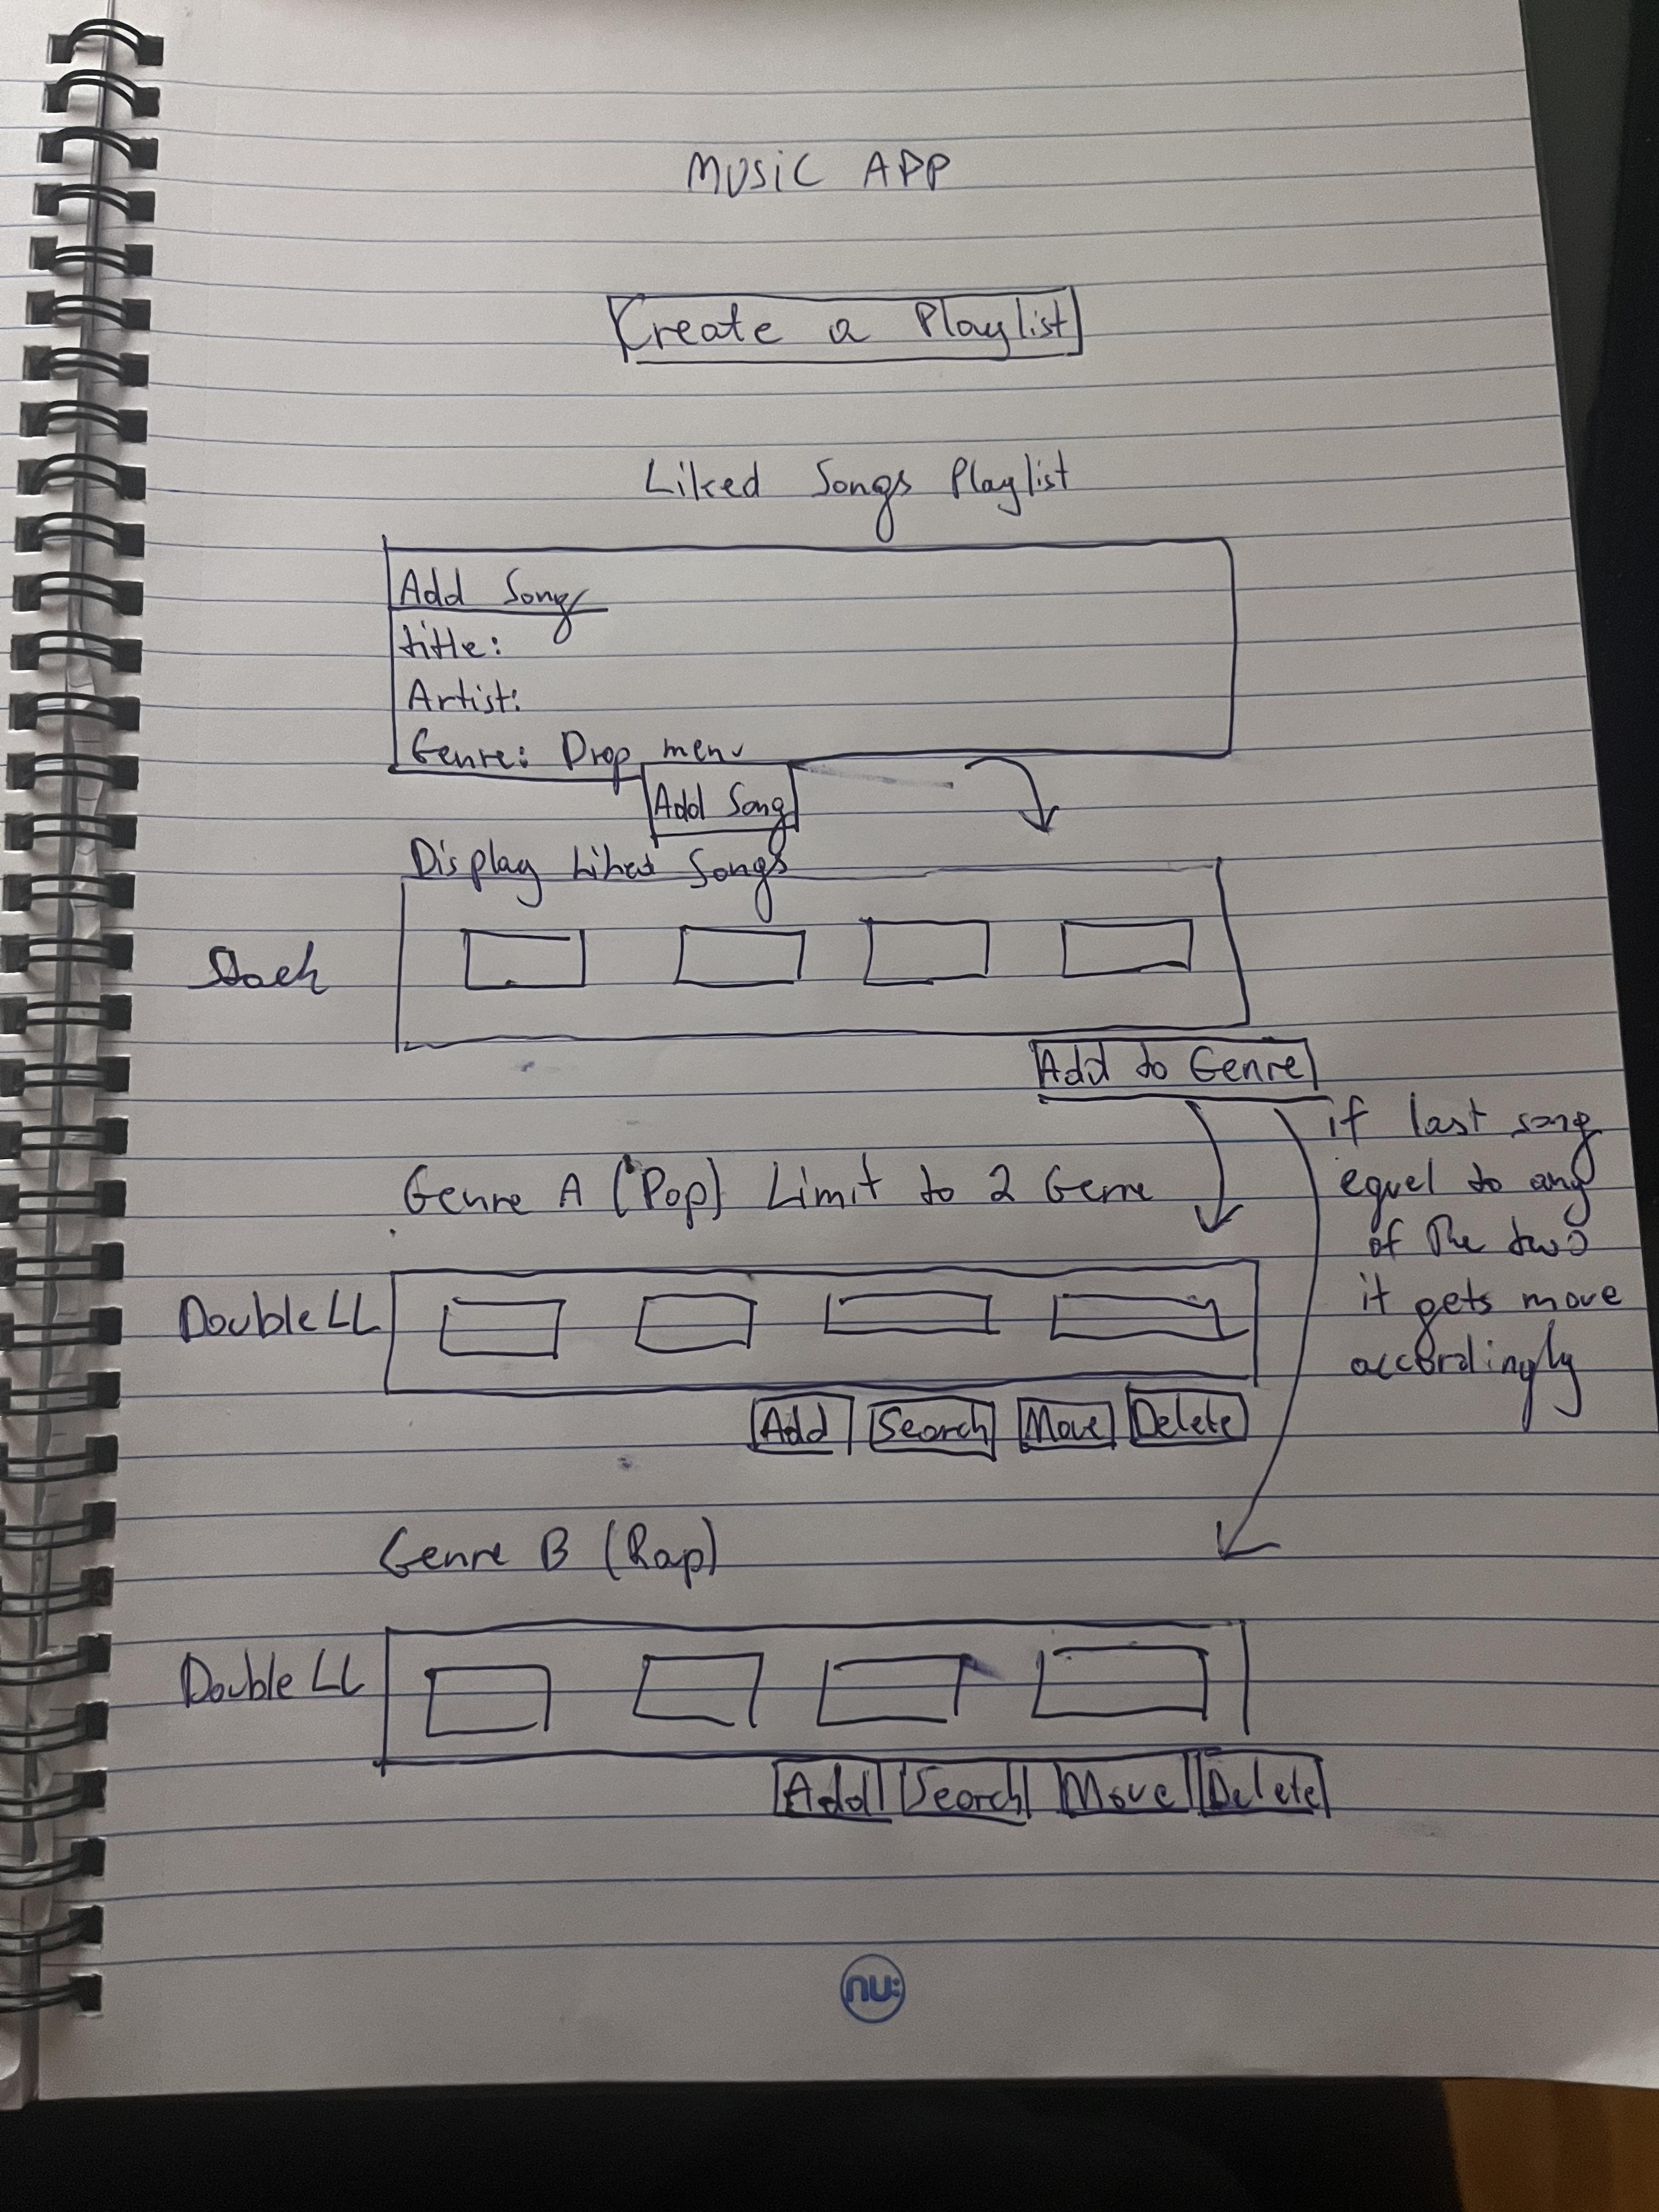 MUSIC APP
Create a Playlist
Liked Songs Playlist
Add Song
title:
Artist:
Genre: Drop menu
Add Song
Display Liked Songs
Stack
Add to Genre
if last song
equel to any
of the two
it gets move
accordingly
Genre A (Pop) Limit to 2 Genre
Double LL
Add Search Move Delete
Genre B (Rap)
Double LL
Add Search Move Delete
nu: